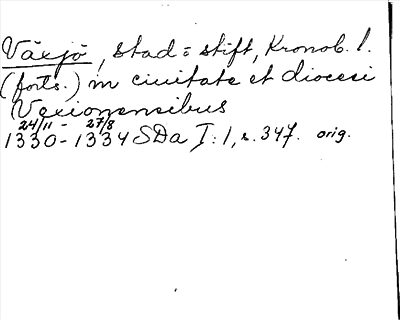 Växjö, stad = stift, Kronob. l.
(forts.) in ciuitate et diocesi
Vexionensibus
24/11 - 27/8
1330-1334 SDa I:1, s. 347. orig.